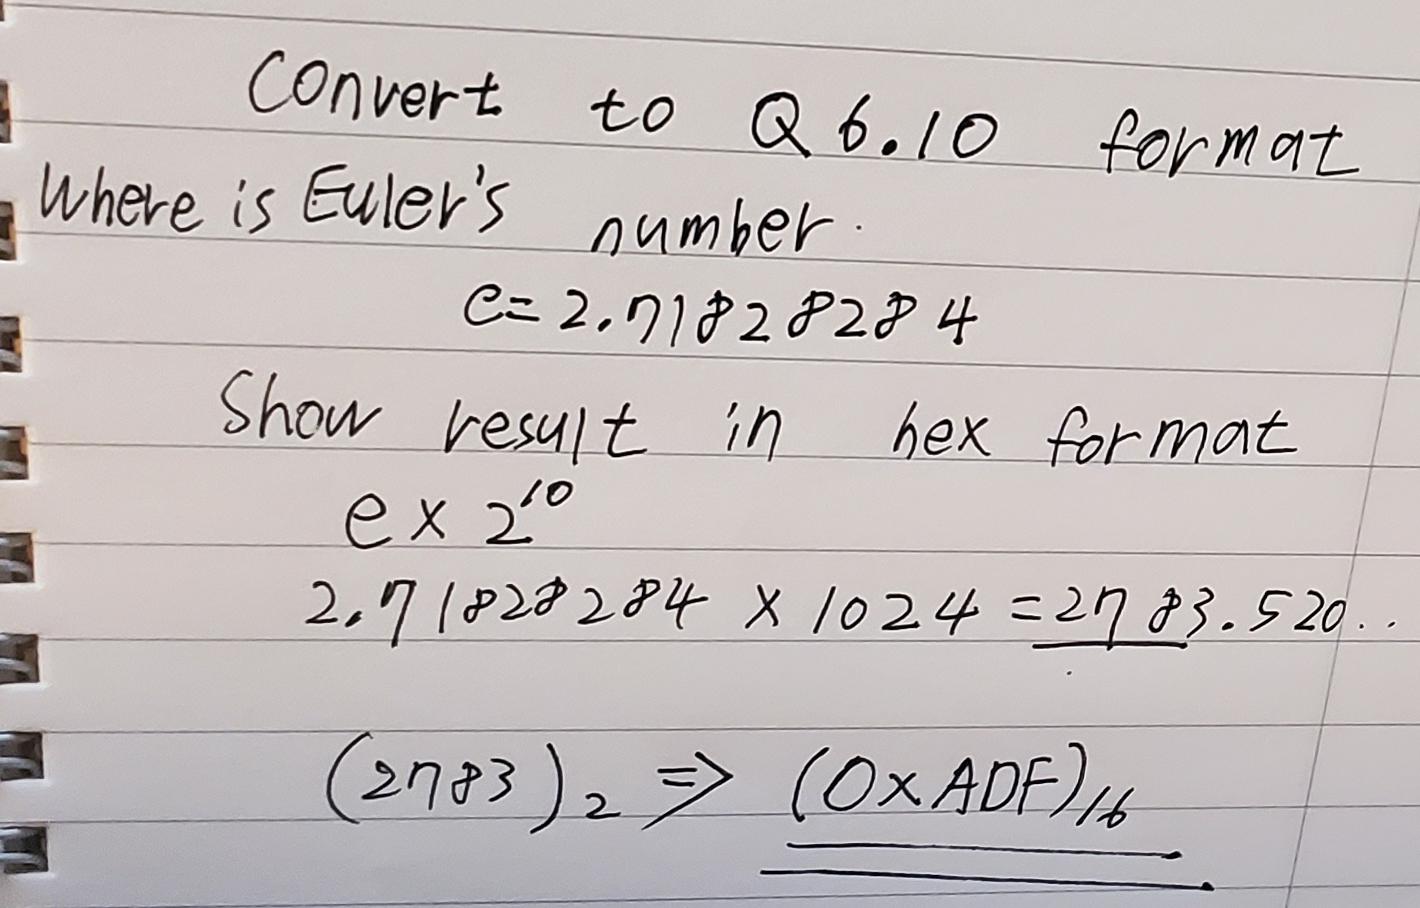 Convert to Q 6.10 format
Where is Euler's number.
e=2.71828284
Show result in hex format
e x 2^10
2.718282​84 x 1024 =2783.520..
(2783)₂ ⇒ (0xADF)₁₆